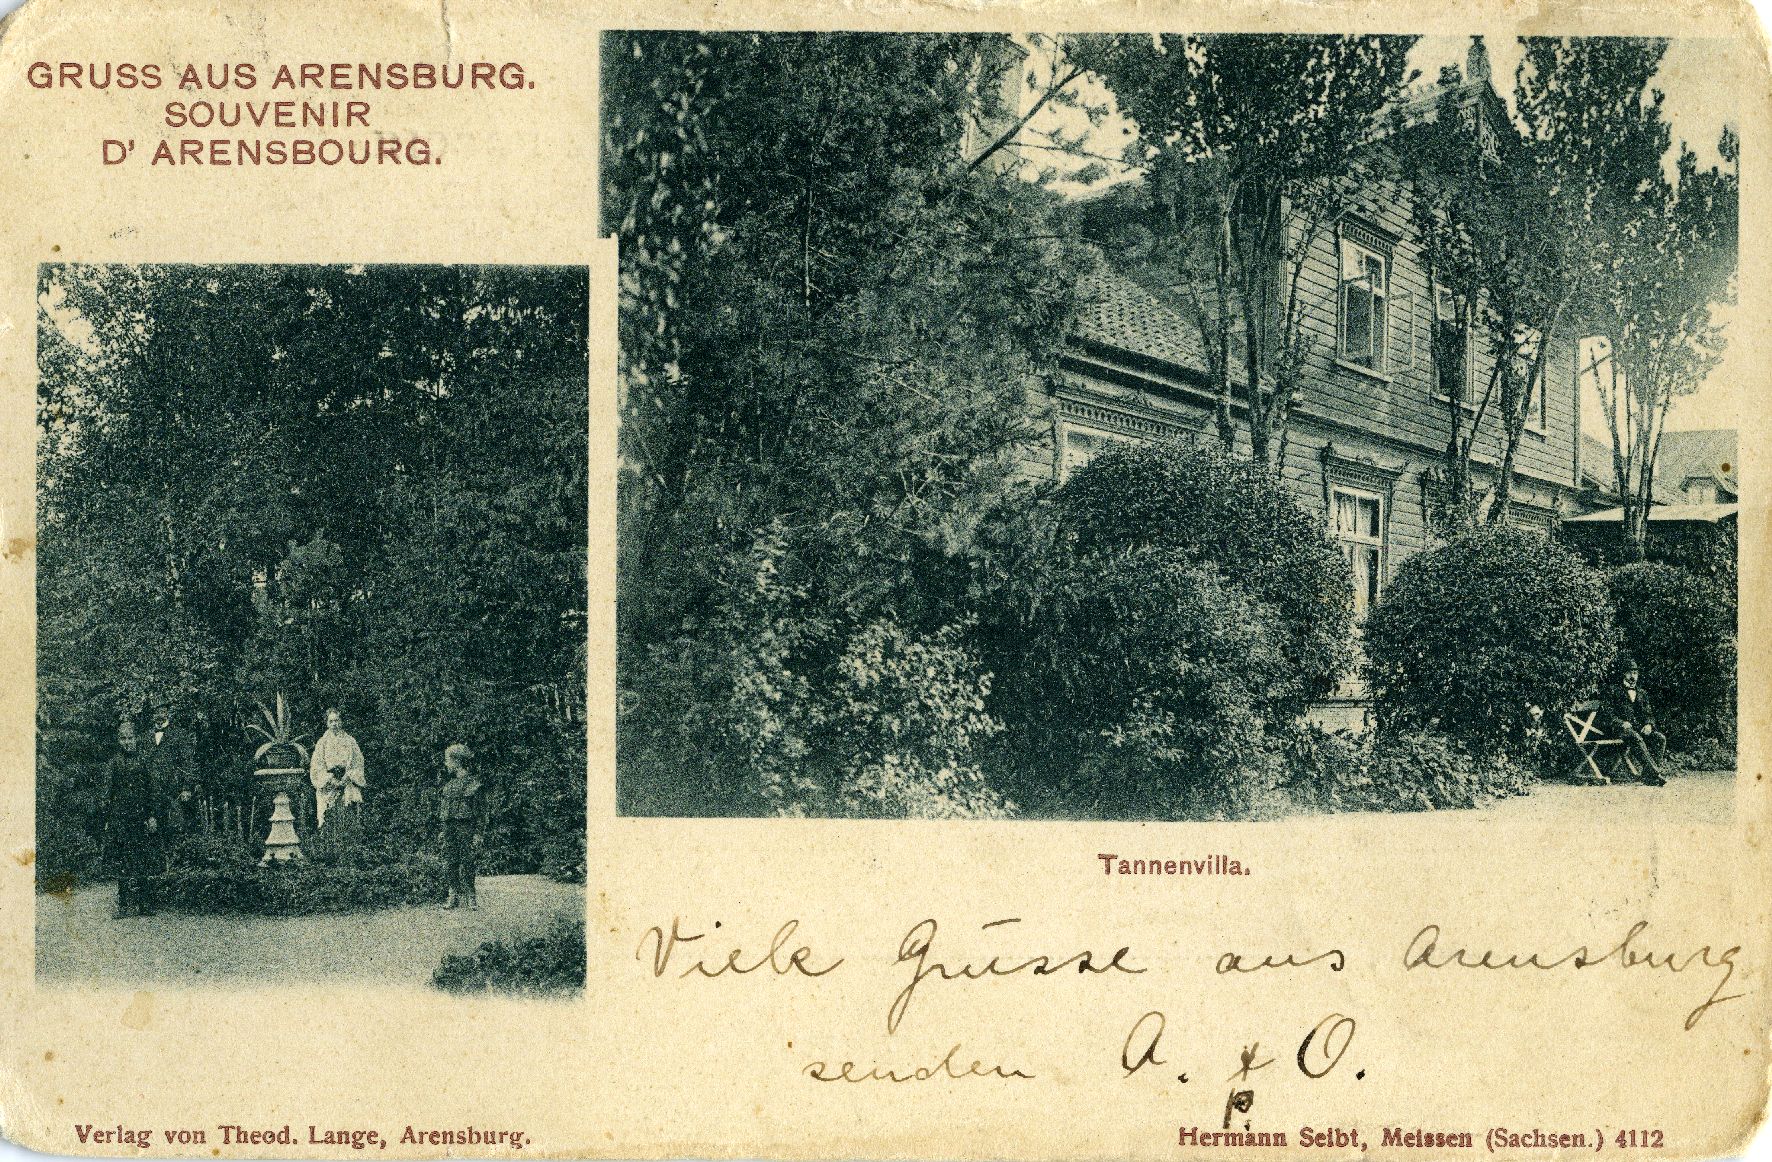 GRUSS AUS ARENSBURG.
SOUVENIR
D' ARENSBOURG.
Tannenvilla.
Viele Grüsse aus Arensburg
senden A. & O.
p.
Verlag von Theod. Lange, Arensburg.
Hermann Seibt, Meissen (Sachsen.) 4112